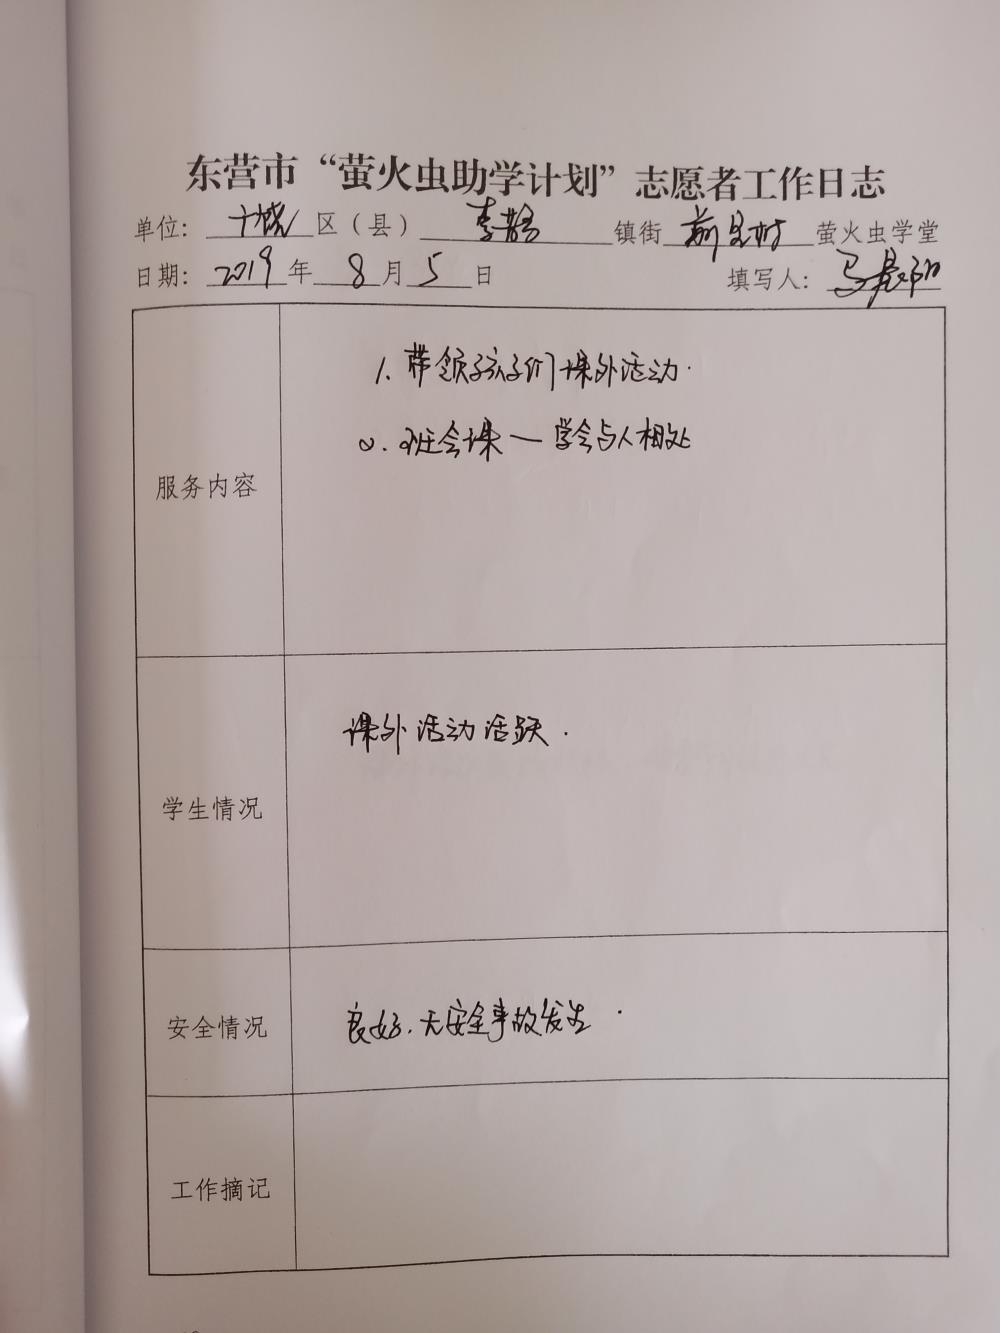 东营市“萤火虫助学计划”志愿者工作日志
单位：广饶区（县）李鹊镇街前吴村萤火虫学堂
日期：2019年8月5日 填写人：马
1.带领孩子们课外活动.
2.班会课—学会与人相处
服务内容
课外活动活跃.
学生情况
良好.无安全事故发生.
安全情况
工作摘记